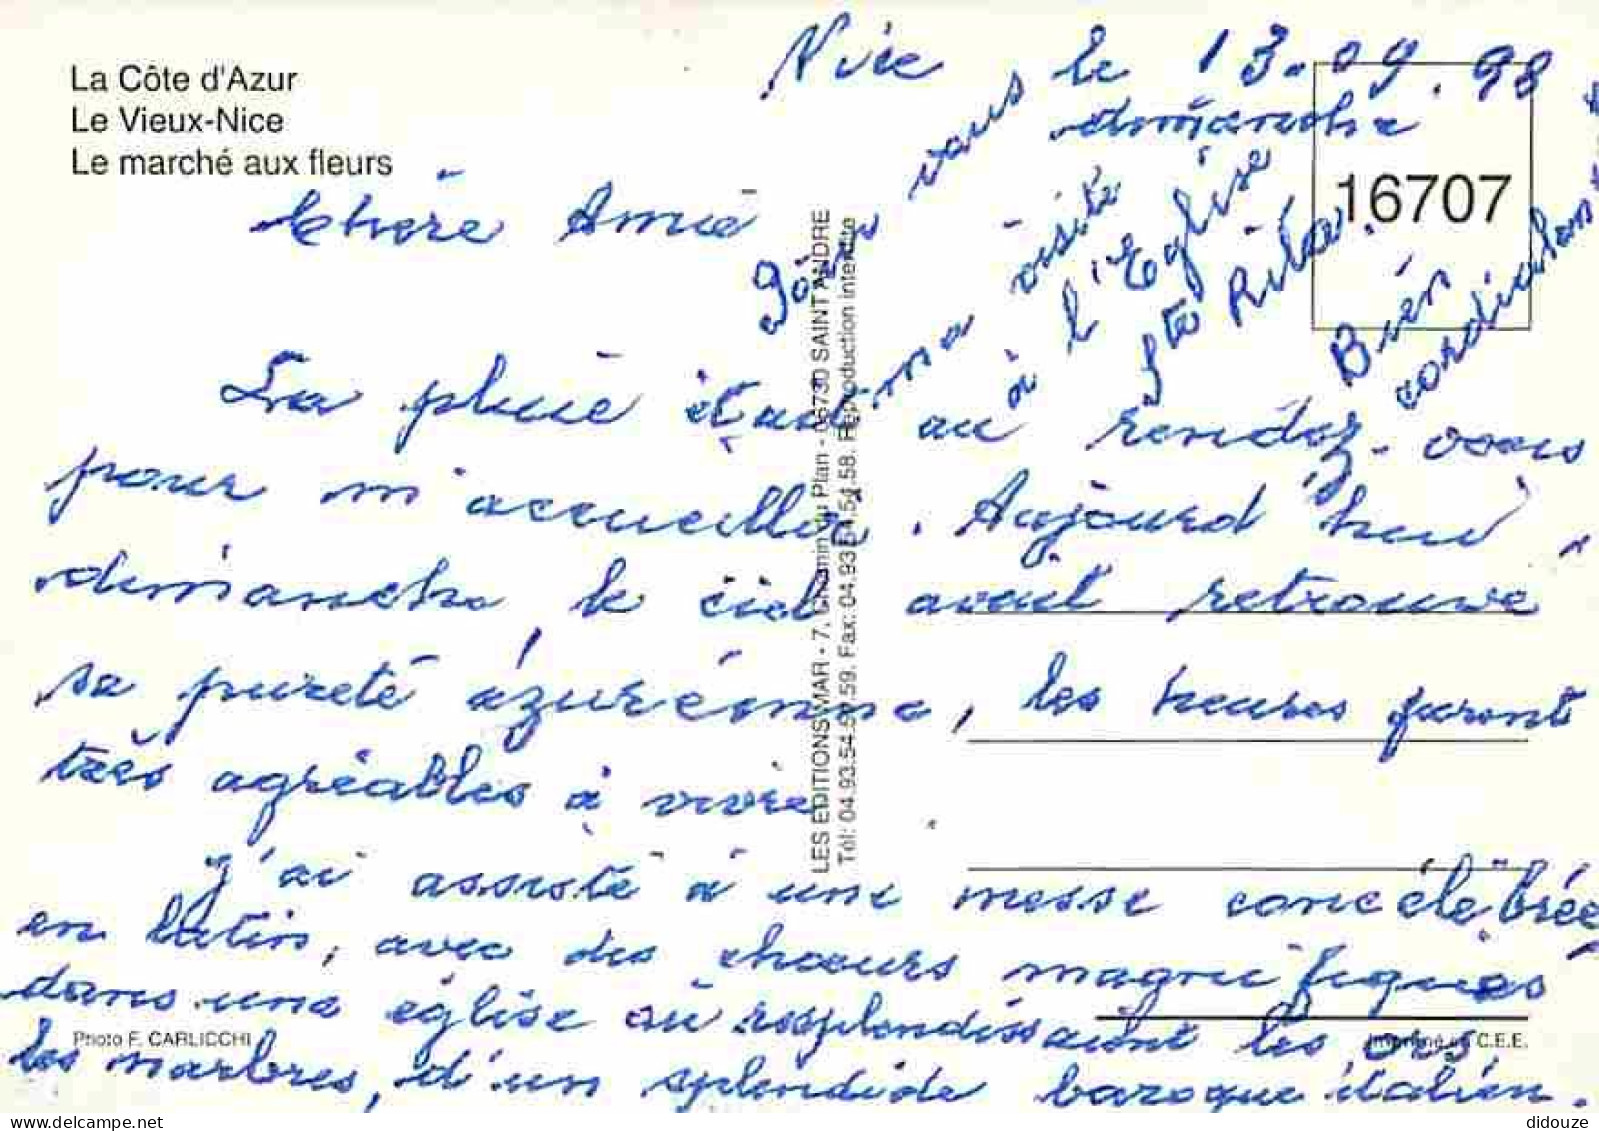 La Côte d'Azur
Le Vieux-Nice
Le marché aux fleurs
Nice le 13.09.98
dimanche
Chère Amie
La pluie était au rendez-vous
pour m'accueillir. Aujourd'hui,
dimanche, le ciel avait retrouvé
sa pureté azuréenne, les heures furent
très agréables à vivre
J'ai assisté à une messe concélébrée
en latin, avec des choeurs magnifiques
dans une église où resplendissaient les ors,
les marbres, d'un splendide baroque italien.
vous
ma visite
à l'Eglise
Ste Rita.
Bien
cordialement
16707
LES EDITIONS MAR - 7, Chemin du Plan - 06730 SAINT ANDRE
Tél: 04.93.54.59. Fax: 04.93.54.54.58. Reproduction interdite
Photo F. CARLICCHI
Imprimé en C.E.E.
didouze
delcampe.net